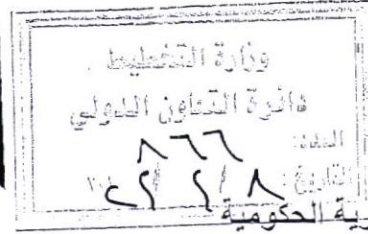 وزارة التخطيط
دائرة التعاون الدولي
العدد: ٨٦٦
التاريخ: ٨ / ٢ /
ية الحكومية